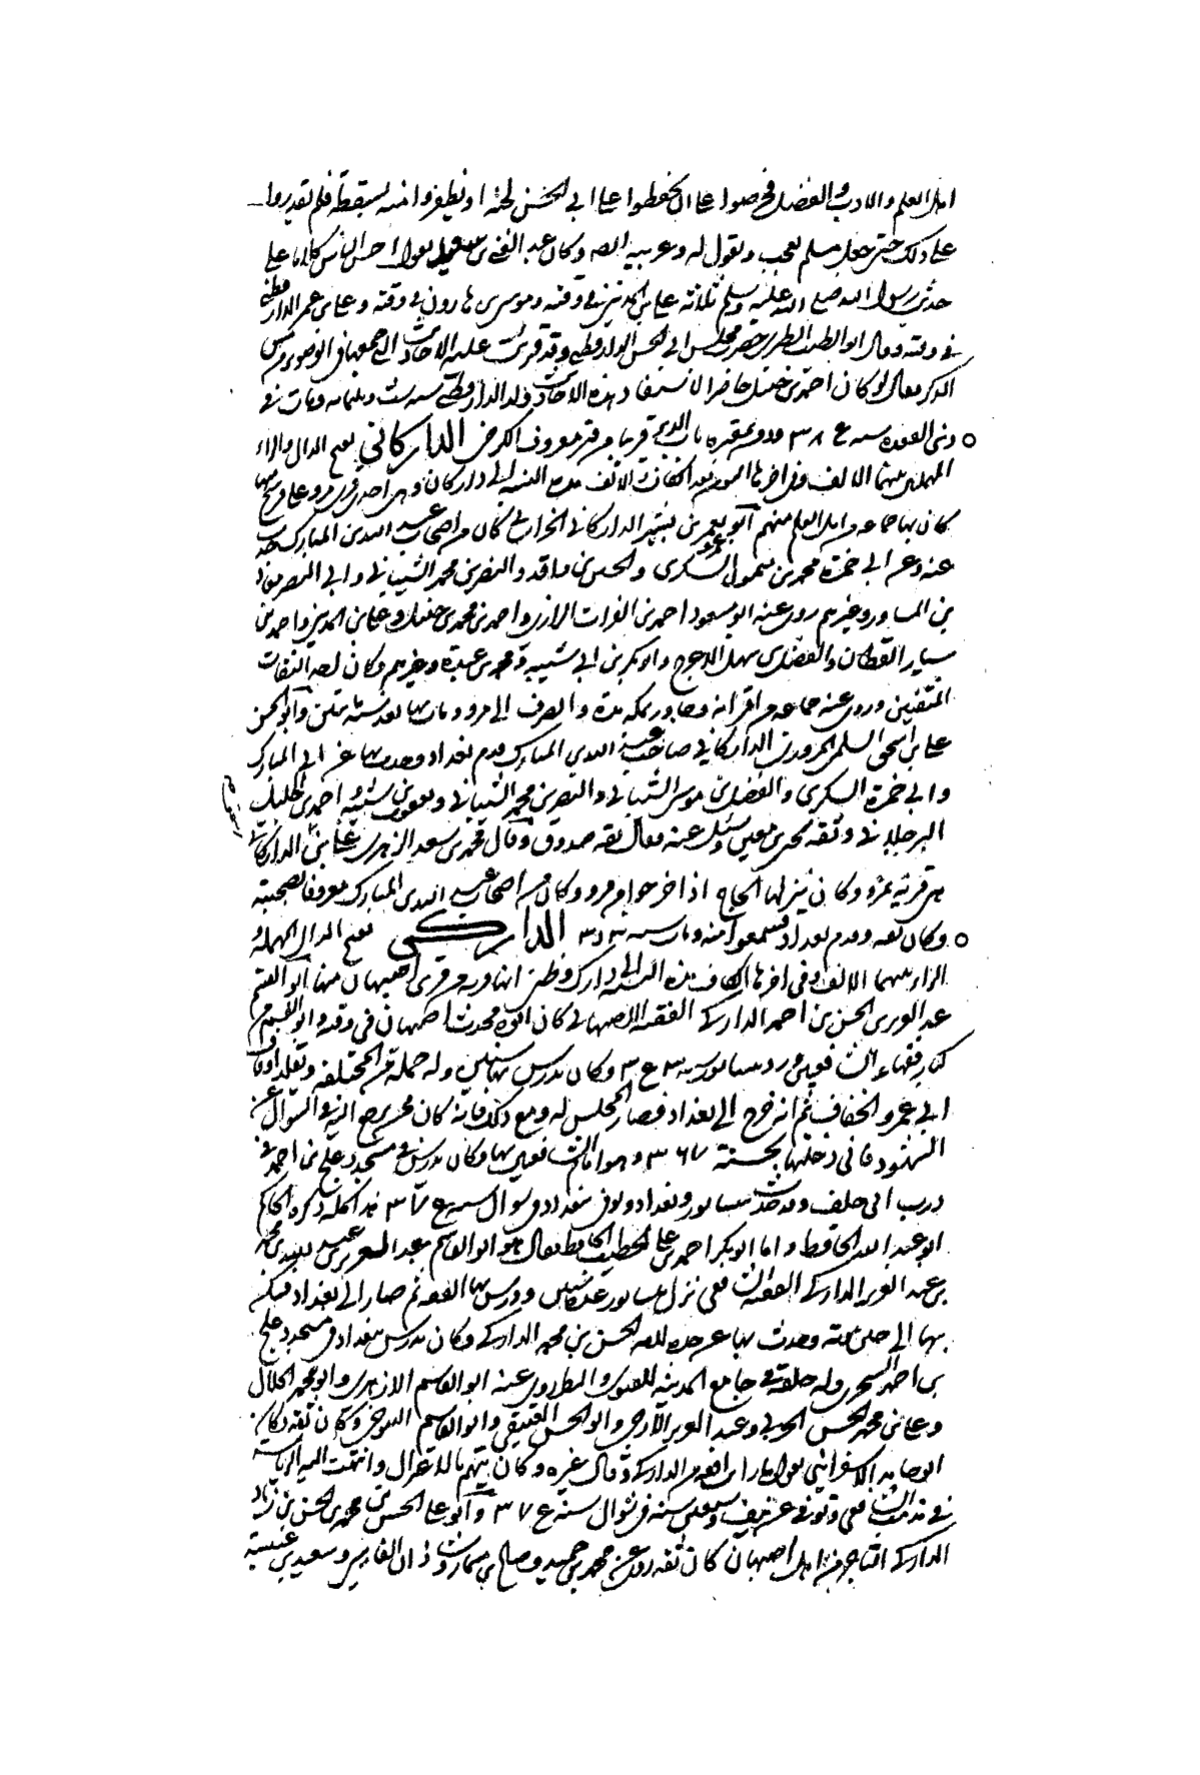 اهل العلم والادب والفضل فحرصوا على ان يحفظوا على ابي الحسن لحنة او يظفروا منه بسقطة فلم يقدروا
على ذلك حتى جعل مسلم يعجب ويقول له وعربية ايضا وكان عبد الغني بن سعيد يقول احسن الناس كلاما على
حديث رسول الله صلى الله عليه وسلم ثلاثة علي بن المديني في وقته وموسى بن هارون في وقته وعلي بن عمر الدارقطني
في وقته وقال ابو الطيب الطبري حضرت مجلس ابي الحسن الدارقطني وقد قرئت عليه الاحاديث التي جمعها في الوضوء من مس
الذكر فقال لو كان احمد بن حنبل حاضرا لاستفاد هذه الاحاديث ولد الدارقطني سنة ست وثلثمائة ومات في
ذي القعدة سنة ٣٨٤ ودفن بمقبرة باب الدير قريبا من قبر معروف الكرخي الداركاني بفتح الدال والراء
المهملتين بينهما الالف وفي اخرها النون بعد الكاف والالف هذه النسبة الى داركان وهي احدى قرى مرو على فرسخ منها
كان بها جماعة من اهل العلم منهم ابو يعمر بن بشير الداركاني الخراساني كان من اصحاب عبد الله بن المبارك حدث
عنه وعن ابي حمزة محمد بن ميمون السكري والحسين بن واقد والنضر بن محمد الشيباني وابي النضر معاذ
بن المساور وغيرهم روى عنه ابو مسعود احمد بن الفرات الرازي واحمد بن محمد بن حنبل وعلي بن المديني واحمد بن
سيار القطان والفضل بن سهل الاعرج وابو بكر بن ابي شيبة ومحمد بن عبدة وغيرهم وكان احد الثقات
المتقنين وروى عنه جماعة من اقرانه وجاور بمكة مدة وانصرف الى مرو ومات بها بعد سنة مئتين وابو الحسن
علي بن اسحق السلمي المروزي الداركاني صاحب عبد الله بن المبارك قدم بغداد وحدث بها عن ابن المبارك
وابي حمزة السكري والفضل بن موسى الشيباني والنضر بن محمد الشيباني ويعقوب بن شيبة احمد بن الخليل
البرجلاني وثقه يحيى بن معين وسئل عنه فقال ثقة صدوق وقال محمد بن سعد الزهري علي بن الداركاني
من قرية بمرو وكان ينزلها الحاج اذا خرجوا من مرو وكان من اصحاب عبد الله بن المبارك معروفا بصحبته
وكان ثقة وقدم بغداد فسمعوا منه ومات سنة ٢١٣ الداركي بفتح الدال المهملة
الراء بينهما الالف وفي اخرها الكاف هذه النسبة الى دارك وظني انها قرية من قرى اصبهان منها ابو القسم
عبد العزيز بن الحسن بن احمد الداركي الفقيه الاصبهاني كان ابوه محدث اصبهان في وقته وابو القسم من
كبار فقهاء الشافعيين ورد نيسابور سنة ٣٤٣ وكان يدرس بها سنين وله جملة من المختلفة وتقلد اوقاف
ابي عمرو الخفاف ثم انه خرج الى بغداد فصار المجلس له ومع ذلك فانه كان
الشهود فاني دخلتها سنة ٣٦٧ وهو امام الشافعيين بها وكان يدرس في مسجد دعلج بن احمد في
درب ابي خلف وقد حدث بنيسابور وبغداد وتوفي ببغداد في شوال سنة ٣٧٤ هذا كله ذكره الحاكم
ابو عبد الله الحافظ واما ابو بكر احمد بن علي الخطيب الحافظ فقال هو ابو القاسم عبد العزيز بن عبد الله بن محمد
بن عبد العزيز الداركي الفقيه الشافعي نزل نيسابور عدة سنين ودرس بها الفقه ثم صار الى بغداد فسكن
بها الى حين موته وحدث بها عن جده لامه الحسن بن محمد الداركي وكان يدرس ببغداد في مسجد دعلج
بن احمد السجزي وله حلقة في جامع المدينة للفتوى والنظر روى عنه ابو القاسم الازهري وابو محمد الخلال
وعلي بن محمد بن الحسن الحربي وعبد العزيز الازجي وابو الحسن العتيقي وابو القاسم التنوخي وكان ثقة وكان
ابو حامد الاسفرايني يقول ما رايت افقه من الداركي وقال غيره وكان يتهم بالاعتزال وانتهت اليه الرياسة
في مذهب الشافعي وتوفي عن نيف وسبعين سنة في شوال سنة ٣٧٤ وابو علي الحسن بن محمد بن الحسن بن زياد
الداركي التاجر من اهل اصبهان كان ثقة روى عن محمد بن حميد وصالح بن مسمار وسعيد بن عنبسة